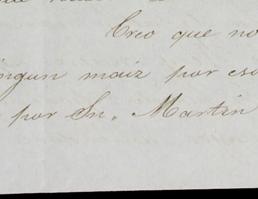 Creo que no
ingun maiz por eso
por Sn. Martin